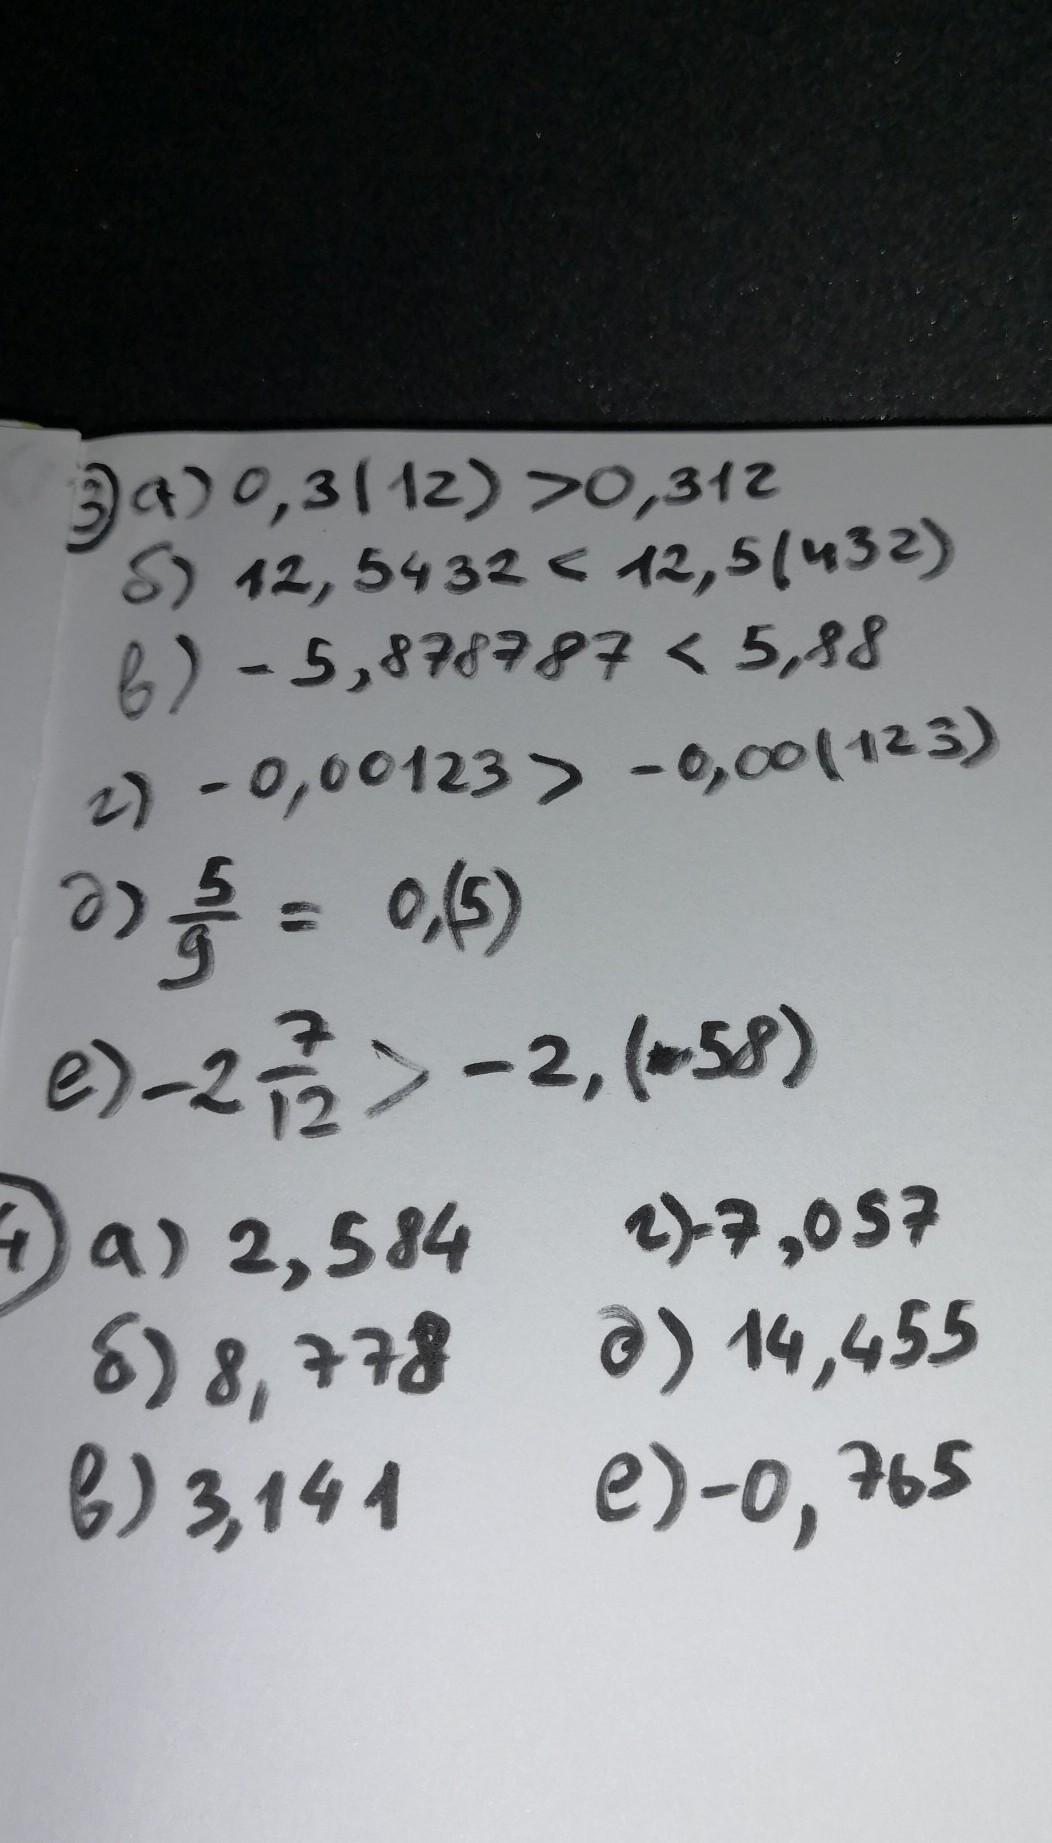 3) а) 0,3(12) > 0,312
б) 12,5432 < 12,5(432)
в) -5,878787 < 5,88
г) -0,00123 > -0,00(123)
д) 5/9 = 0,(5)
е) -2 7/12 > -2,(58)
4) а) 2,584 г) -7,057
б) 8,778 д) 14,455
в) 3,141 е) -0,765